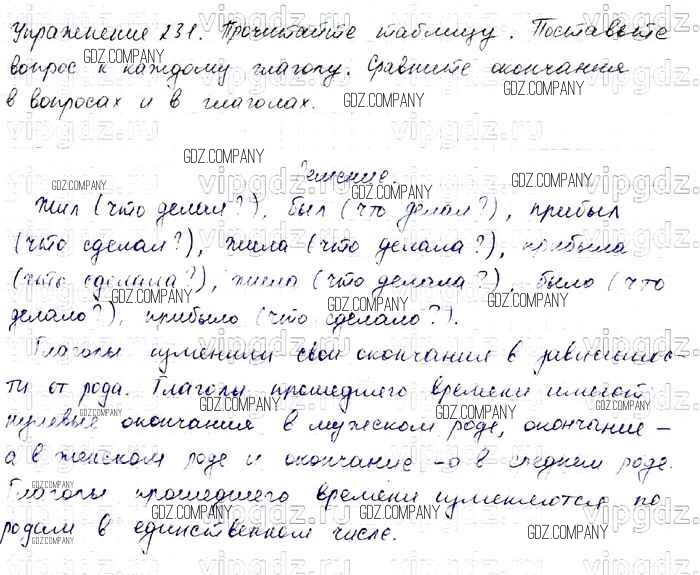 Упражнение 231. Прочитайте таблицу. Поставьте
вопрос к каждому глаголу. Сравните окончания
в вопросах и в глаголах.
Решение.
Жил (что делал?), был (что делал?), прибыл
(что сделал?), жила (что делала?), прибыла
(что сделала?), жило (что делало?), было (что
делало?), прибыло (что сделало?).
Глаголы изменили свои окончания в зависимос-
ти от рода. Глаголы прошедшего времени имеют
нулевые окончания в мужском роде, окончание -
а в женском роде и окончание -о в среднем роде.
Глаголы прошедшего времени изменяются по
родам в единственном числе.
GDZ.COMPANY
vipgdz.ru